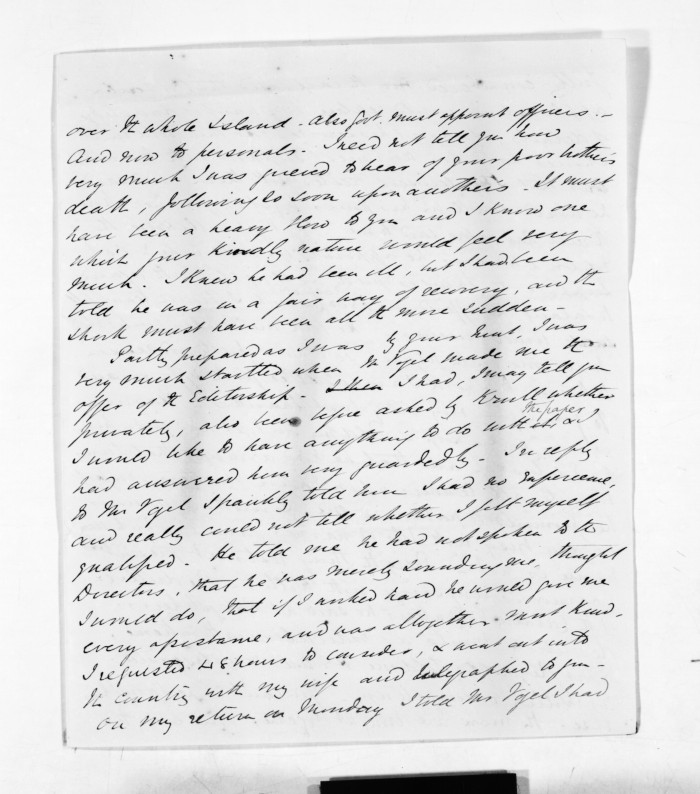 over the whole Island. also Govt. must appoint officers. -
And now to personals. I need not tell you how
very much I was grieved to hear of your poor brothers
death, following so soon upon anothers. It must
have been a heavy blow to you and I know one
which your kindly nature would feel very
much. I knew he had been ill, but I had been
told he was in a fair way of recovery, and the
shock must have been all the more sudden -
Partly prepared as I was by your hint, I was
very much startled when Mr Vogel made me the
offer of the Editorship. I then I had, I may tell you
privately, also been before asked by Krull whether
I would like to have anything to do with the paper
had answered him very guardedly. In reply
to Mr Vogel I frankly told him I had no experience,
and really could not tell whether I felt myself
qualified. He told me he had not spoken to the
Directors, that he was merely sounding me, thought
I would do, that if I worked hard he would give me
every assistance, and was altogether most kind.
I requested 48 hours to consider, & went out into
the country with my wife and telegraphed to you -
on my return on Monday I told Mr Vogel I had